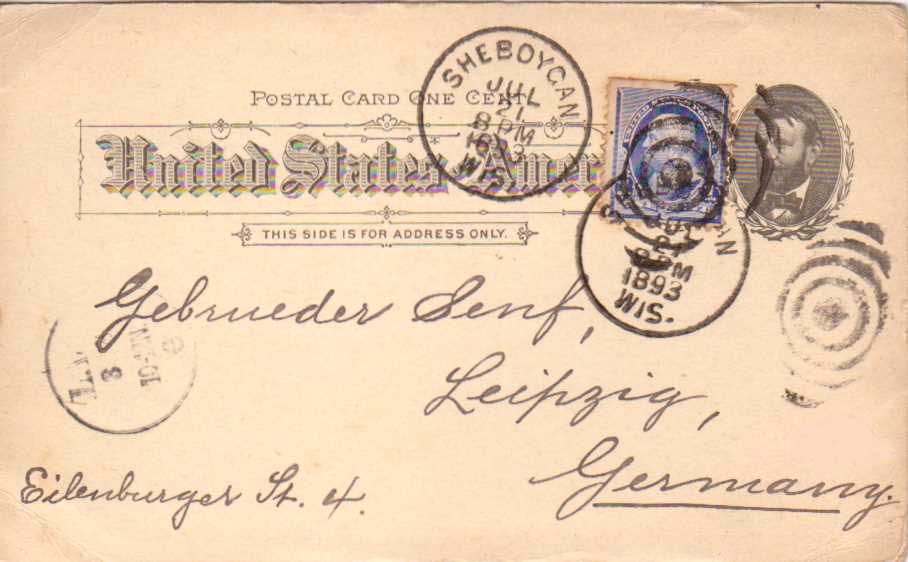 POSTAL CARD ONE CENT
United States Amer
THIS SIDE IS FOR ADDRESS ONLY.
SHEBOYGAN
JUL
21
8 PM
1893
WIS.
21
8 PM
1893
WIS.
Gebrueder Senf,
Leipzig,
Germany.
Eilenburger St. 4.
8